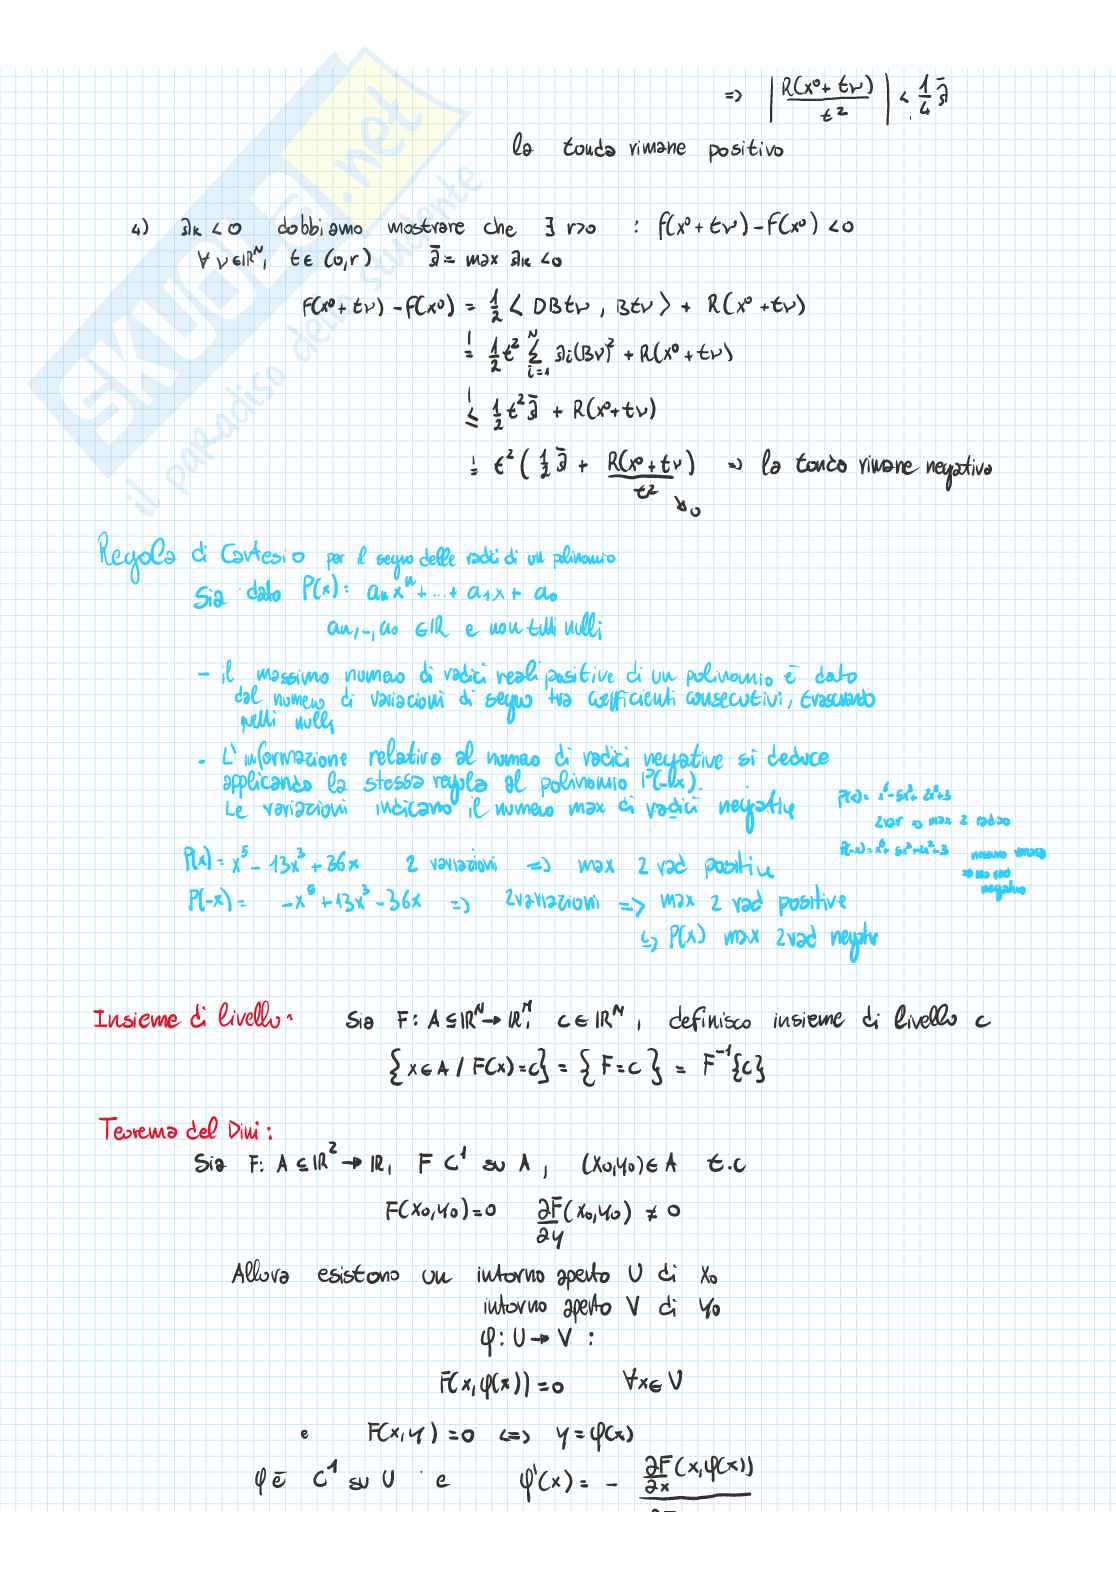 => |R(x⁰+tν)/t²| < 1/4 λ̄
la tonda rimane positivo
4) λk < 0 dobbiamo mostrare che ∃ r>0 : f(x⁰+tν)-F(x⁰) < 0
∀ ν∈ℝᴺ, t∈(0,r) λ̄ = max λk < 0
F(x⁰+tν)-f(x⁰) = 1/2 < DBtν, Btν > + R(x⁰+tν)
= 1/2 t² Σ_{i=1}^{N} λi(Bν)² + R(x⁰+tν)
≤ 1/2 t² λ̄ + R(x⁰+tν)
= t² ( 1/2 λ̄ + R(x⁰+tν)/t² ) => la tonda rimane negativa
↘0
Regola di Cartesio per il segno delle radici di un polinomio
Sia dato P(x): aₙxⁿ+...+a₁x+a₀
an,-,a0 ∈ℝ e non tutti nulli
- il massimo numero di radici reali positive di un polinomio è dato
dal numero di variazioni di segno tra coefficienti consecutivi, trascurando
quelli nulli
- L'informazione relativa al numero di radici negative si deduce
applicando la stessa regola al polinomio P(-x).
Le variazioni indicano il numero max di radici negative
2var => max 2 rad >0
=> no rad
negative
P(x) = x⁵ - 13x³ + 36x 2 variazioni => max 2 rad positive
P(-x) = -x⁵ + 13x³ - 36x => 2 variazioni => max 2 rad positive
↳ P(x) max 2 rad negativ
Insieme di livello: Sia F: A⊆ℝᴺ→ℝᴹ, c∈ℝᴺ, definisco insieme di livello c
{x∈A / F(x)=c} = {F=c} = F⁻¹{c}
Teorema del Dini:
Sia F: A⊆ℝ²→ℝ, F C¹ su A, (x₀,y₀)∈A t.c
F(x₀,y₀)=0 ∂F/∂y (x₀,y₀) ≠ 0
Allora esistono un intorno aperto U di x₀
intorno aperto V di y₀
φ: U→V :
F(x,φ(x))=0 ∀x∈U
e F(x,y)=0 <=> y=φ(x)
φ è C¹ su U e φ'(x) = - ∂F/∂x (x,φ(x))
SKUOLA.net
il paradiso dello studente